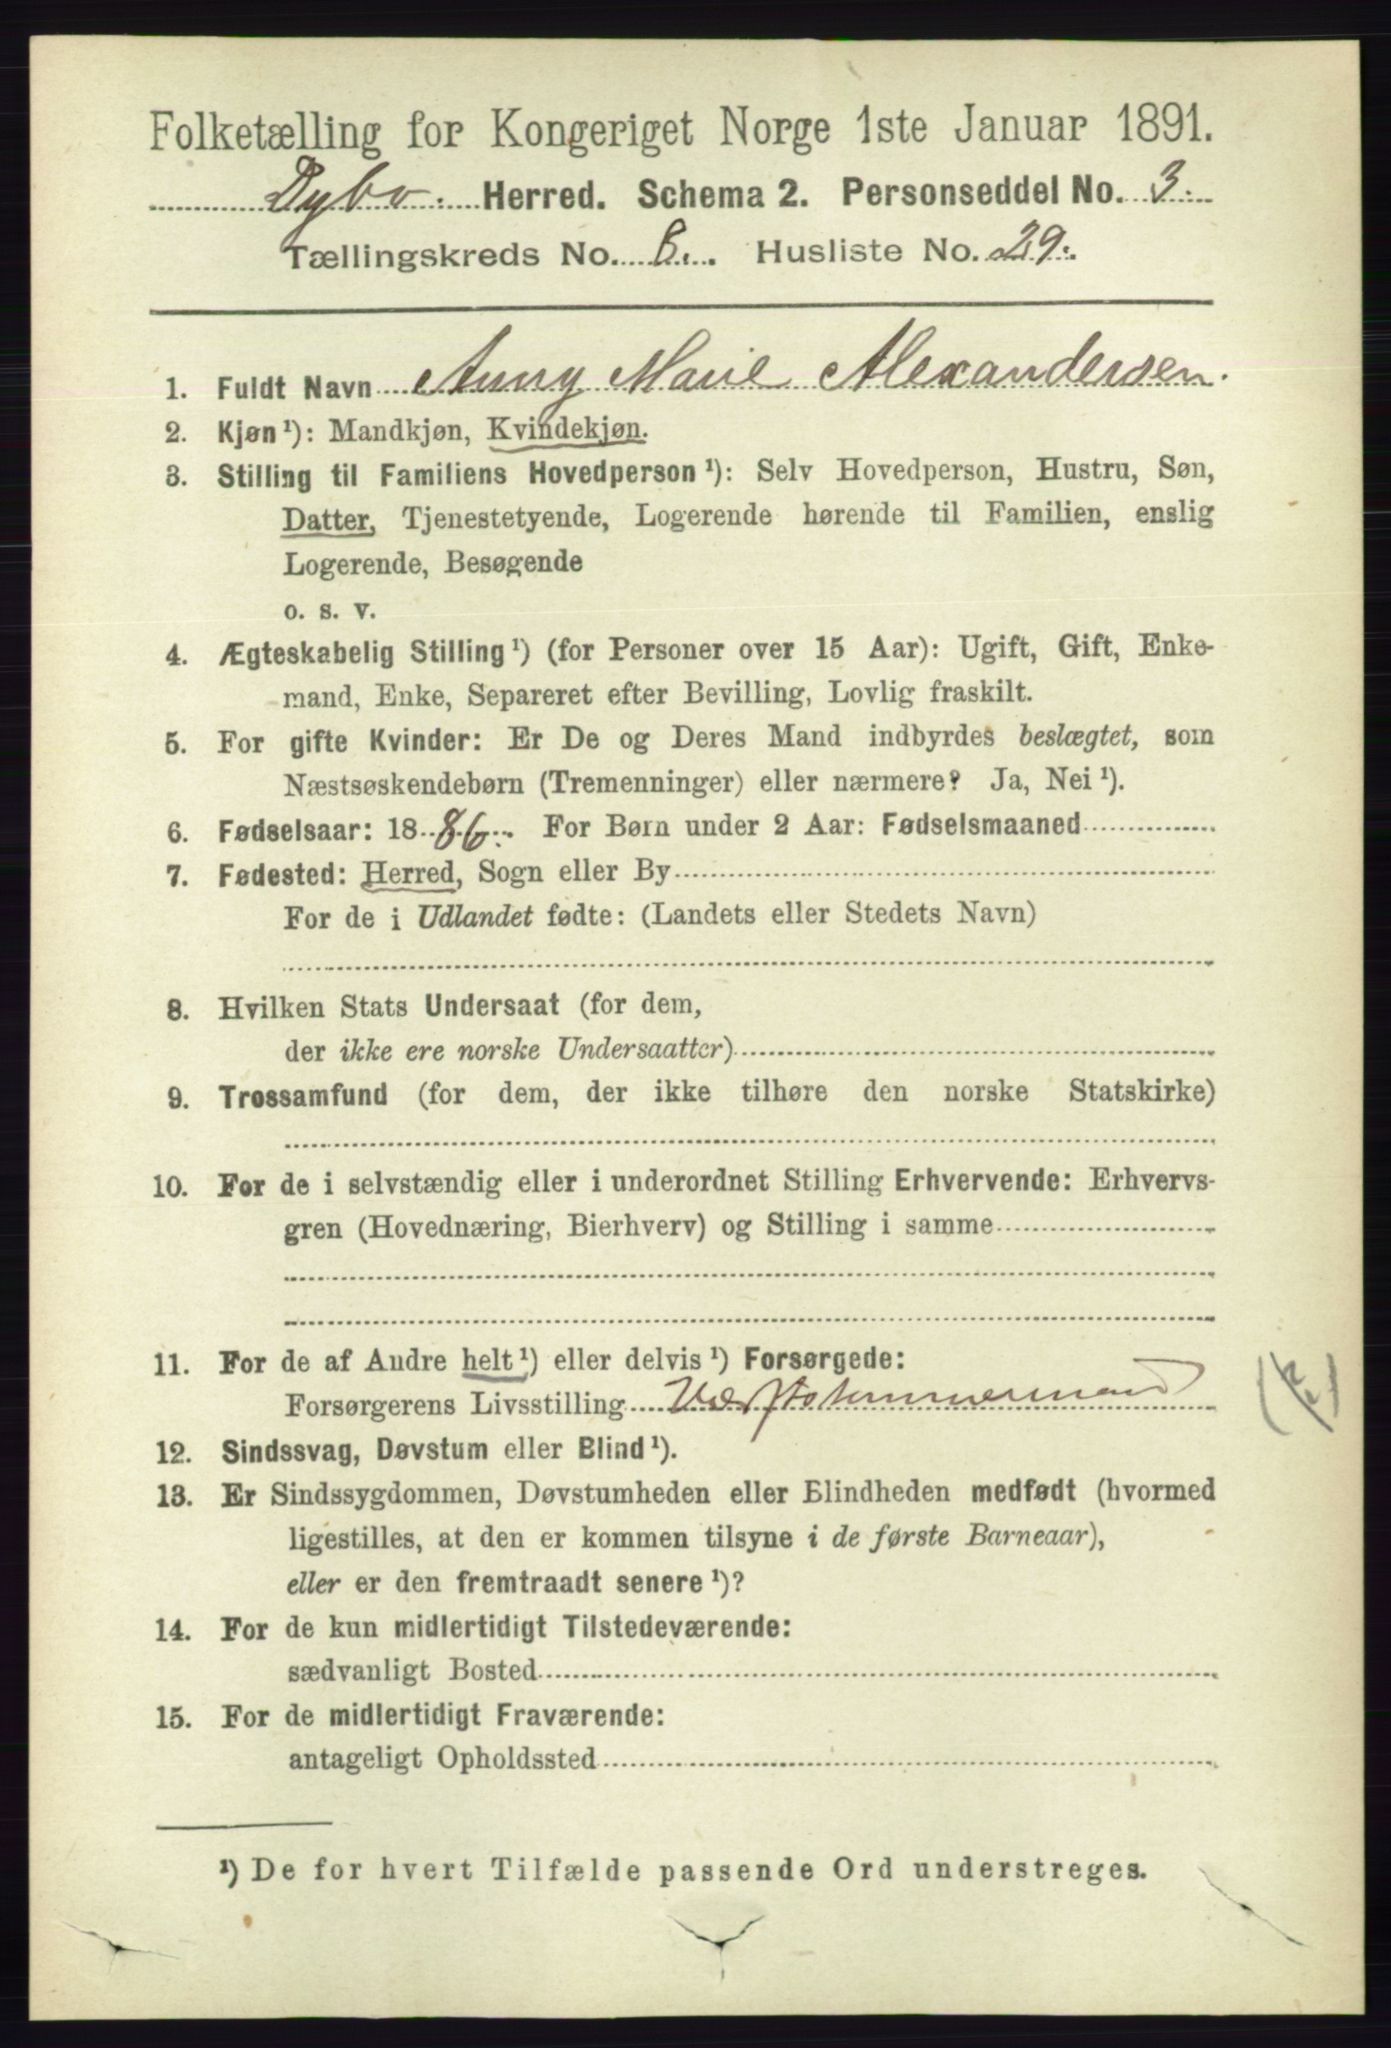 Folketælling for Kongeriget Norge 1ste Januar 1891.
Dybo. Herred. Schema 2. Personseddel No. 3.
Tællingskreds No. 8. Husliste No. 29.
1. Fuldt Navn Anny Marie Alexandersen.
2. Kjøn¹): Mandkjøn, Kvindekjøn.
3. Stilling til Familiens Hovedperson¹): Selv Hovedperson, Hustru, Søn,
Datter, Tjenestetyende, Logerende hørende til Familien, enslig
Logerende, Besøgende
o. s. v.
4. Ægteskabelig Stilling¹) (for Personer over 15 Aar): Ugift, Gift, Enke-
mand, Enke, Separeret efter Bevilling, Lovlig fraskilt.
5. For gifte Kvinder: Er De og Deres Mand indbyrdes beslægtet, som
Næstsøskendebørn (Tremenninger) eller nærmere? Ja, Nei¹).
6. Fødselsaar: 1886. For Børn under 2 Aar: Fødselsmaaned
7. Fødested: Herred, Sogn eller By
For de i Udlandet fødte: (Landets eller Stedets Navn)
8. Hvilken Stats Undersaat (for dem,
der ikke ere norske Undersaatter)
9. Trossamfund (for dem, der ikke tilhøre den norske Statskirke)
10. For de i selvstændig eller i underordnet Stilling Erhvervende: Erhvervs-
gren (Hovednæring, Bierhverv) og Stilling i samme
11. For de af Andre helt¹) eller delvis¹) Forsørgede:
Forsørgerens Livsstilling Værftstømmermand
12. Sindssvag, Døvstum eller Blind¹).
13. Er Sindssygdommen, Døvstumheden eller Blindheden medfødt (hvormed
ligestilles, at den er kommen tilsyne i de første Barneaar),
eller er den fremtraadt senere¹)?
14. For de kun midlertidigt Tilstedeværende:
sædvanligt Bosted
15. For de midlertidigt Fraværende:
antageligt Opholdssted
¹) De for hvert Tilfælde passende Ord understreges.